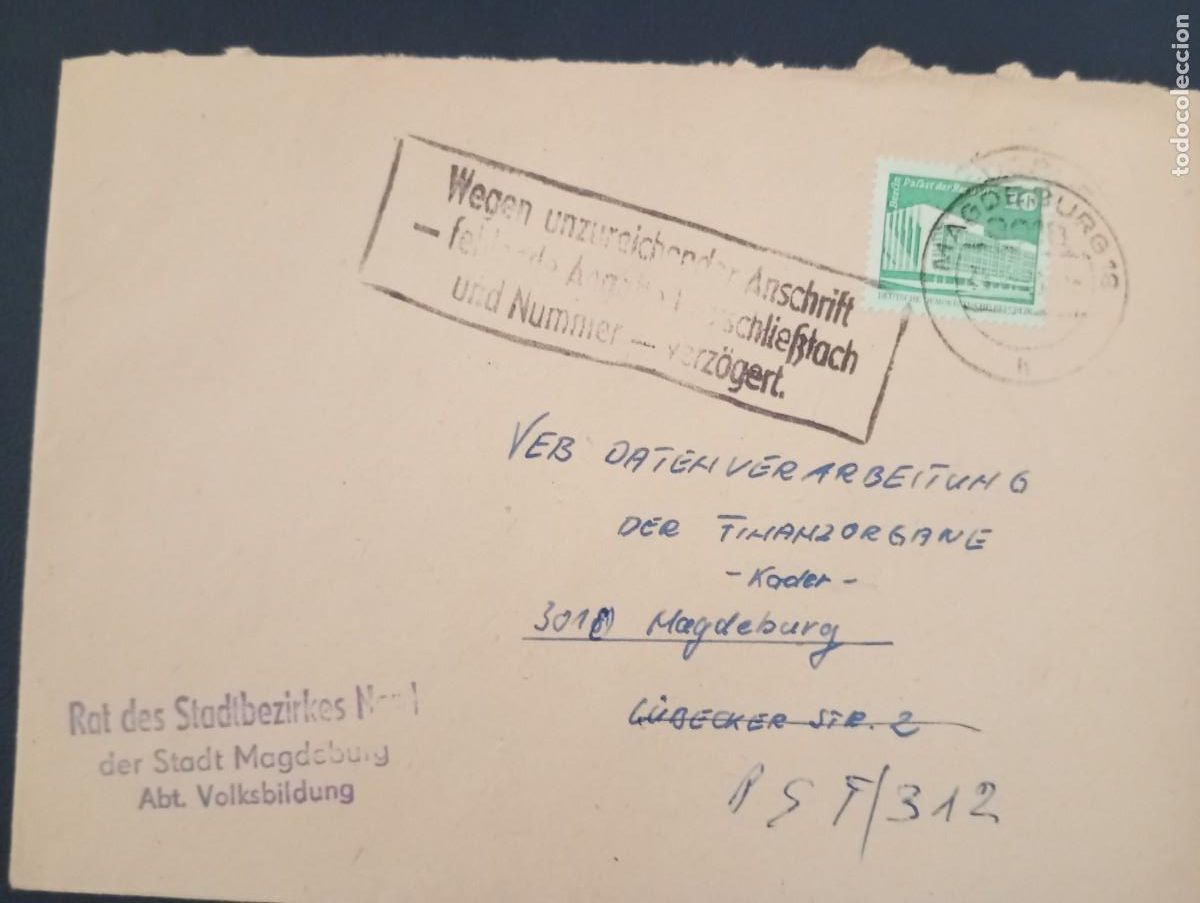 todocoleccion
Wegen unzureichender Anschrift
— fehlende Angabe Postschließfach
und Nummer — verzögert.
Berlin Palast der
MAGDEBURG 18
h
VEB DATENVERARBEITUNG
DER FINANZORGANE
- Kader -
3018 Magdeburg
LÜBECKER STR. 2
PSF/312
Rat des Stadtbezirkes Nord
der Stadt Magdeburg
Abt. Volksbildung